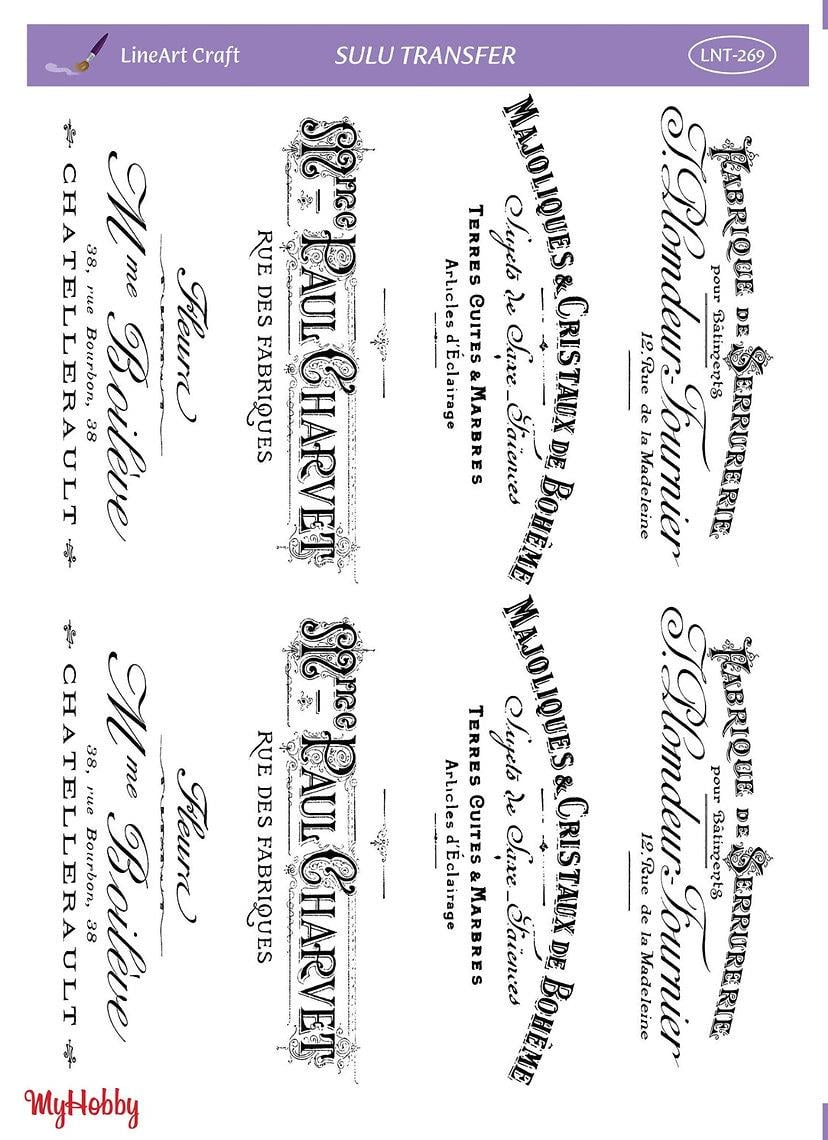 LineArt Craft
SULU TRANSFER
LNT-269
FABRIQUE DE SERRURERIE
pour Bâtiments
J. Plomdeur-Tournier
12, Rue de la Madeleine
MAJOLIQUES & CRISTAUX DE BOHÈME
Sujets de Saxe _ Faïences
TERRES CUITES & MARBRES
Articles d'Éclairage
– PAUL CHARVET
RUE DES FABRIQUES
Fleurs
Mme Boilève
38, rue Bourbon, 38
CHATELLERAULT
FABRIQUE DE SERRURERIE
pour Bâtiments
J. Plomdeur-Tournier
12, Rue de la Madeleine
MAJOLIQUES & CRISTAUX DE BOHÈME
Sujets de Saxe _ Faïences
TERRES CUITES & MARBRES
Articles d'Éclairage
– PAUL CHARVET
RUE DES FABRIQUES
Fleurs
Mme Boilève
38, rue Bourbon, 38
CHATELLERAULT
MyHobby